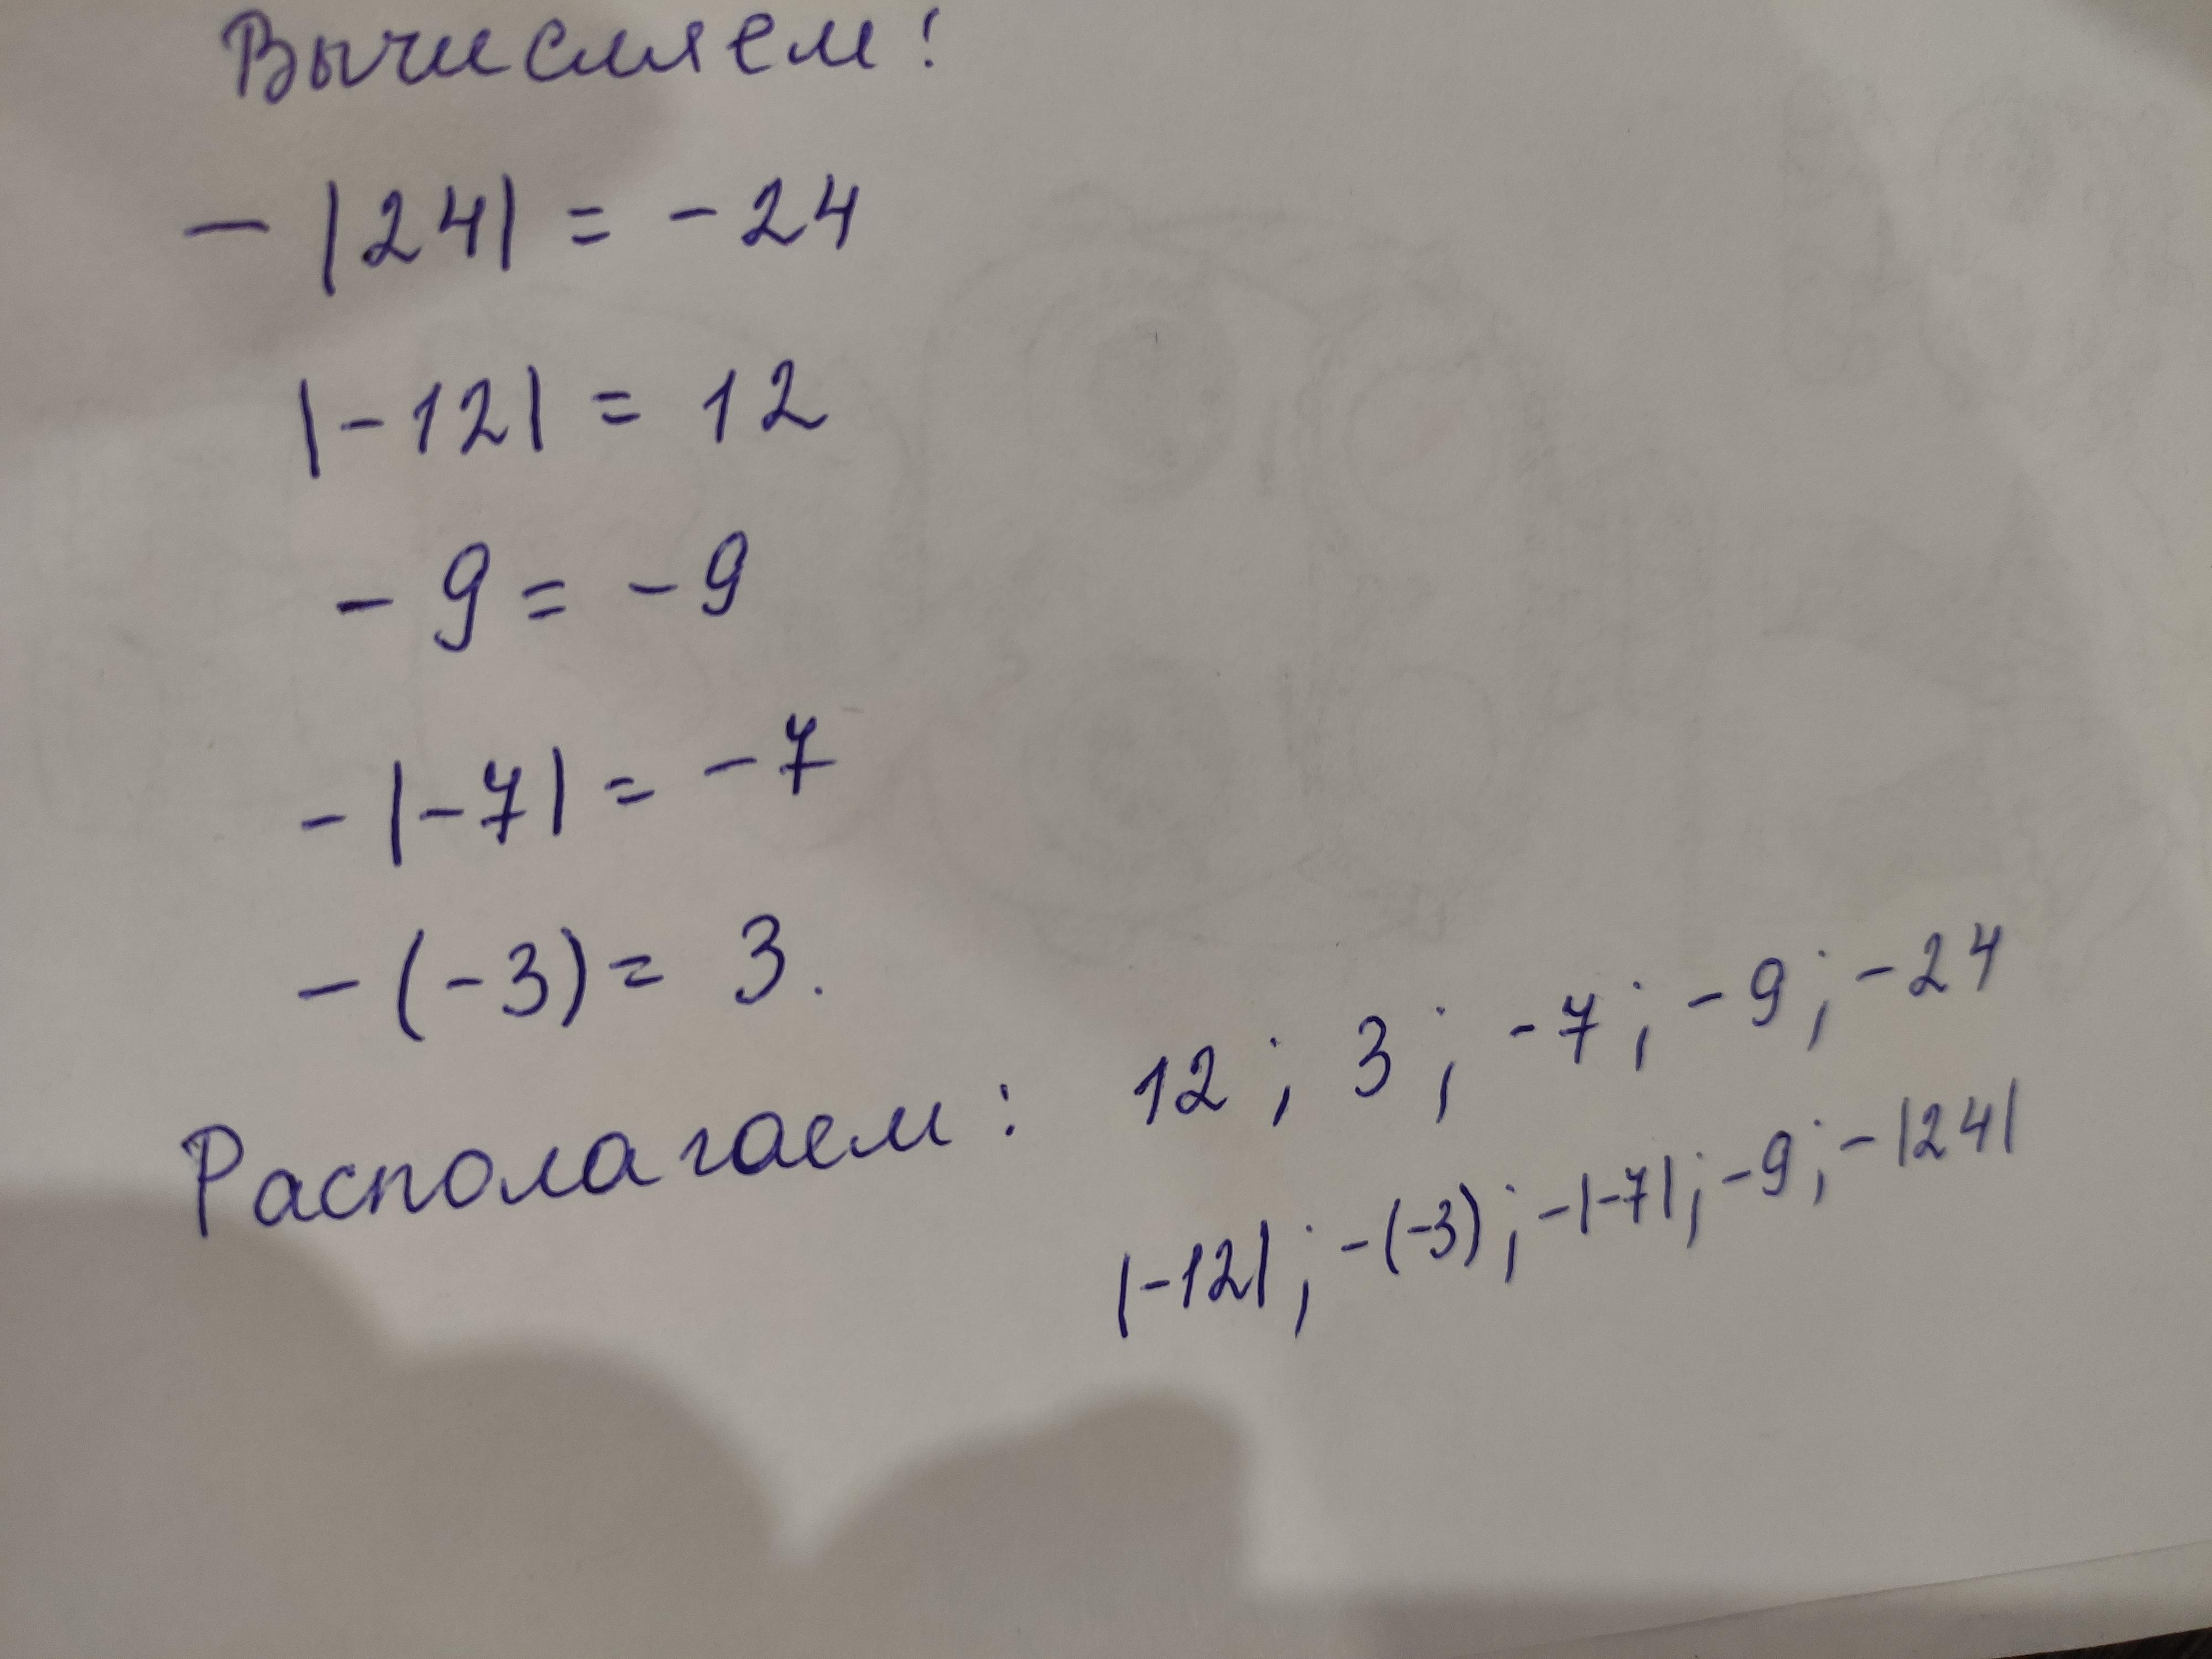 Вычисляем:
- |24| = - 24
|-12| = 12
- 9 = - 9
- |-7| = -7
- (-3) = 3.
Располагаем: 12 ; 3 ; -7 ; -9 ; -24
|-12| ; -(-3) ; -|-7| ; -9 ; -|24|